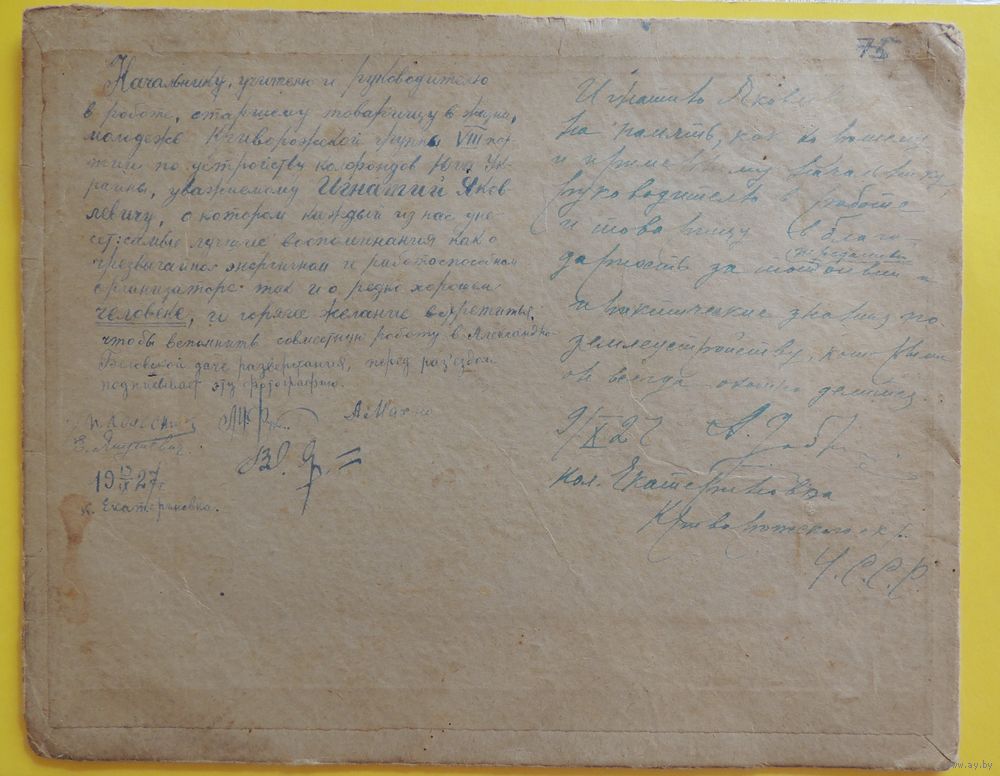 75
Начальнику, учителю и руководителю
в работе, старшему товарищу в жизни,
молодежь Криворожской группы VIII пар-
тии по устройству колфондов Юга Ук-
раины, уважаемому Игнатий Яков
левичу, о котором каждый из нас уне
сет: самые лучшие воспоминания как о
чрезвычайно энергичном и работоспособном
организаторе так и о редко хорошем
человеке, и горячее желание встретиться
чтобы вспомнить совместную работу в Александро-
даче развертания, перед раз'ездом
подписывает эту фотографию.
А Махно
19 27
к. Екатериновка.
Игнатию Яковлев
На память, как
и начальнику,
руководителю в работе
и товарищу в благо-
дарность за
и практические знания по
землеустройству,
он всегда охотно делился.
9/X 27
кол. Екатериновка
Криворожского окр.
У.С.С.Р.
ww.ay.by